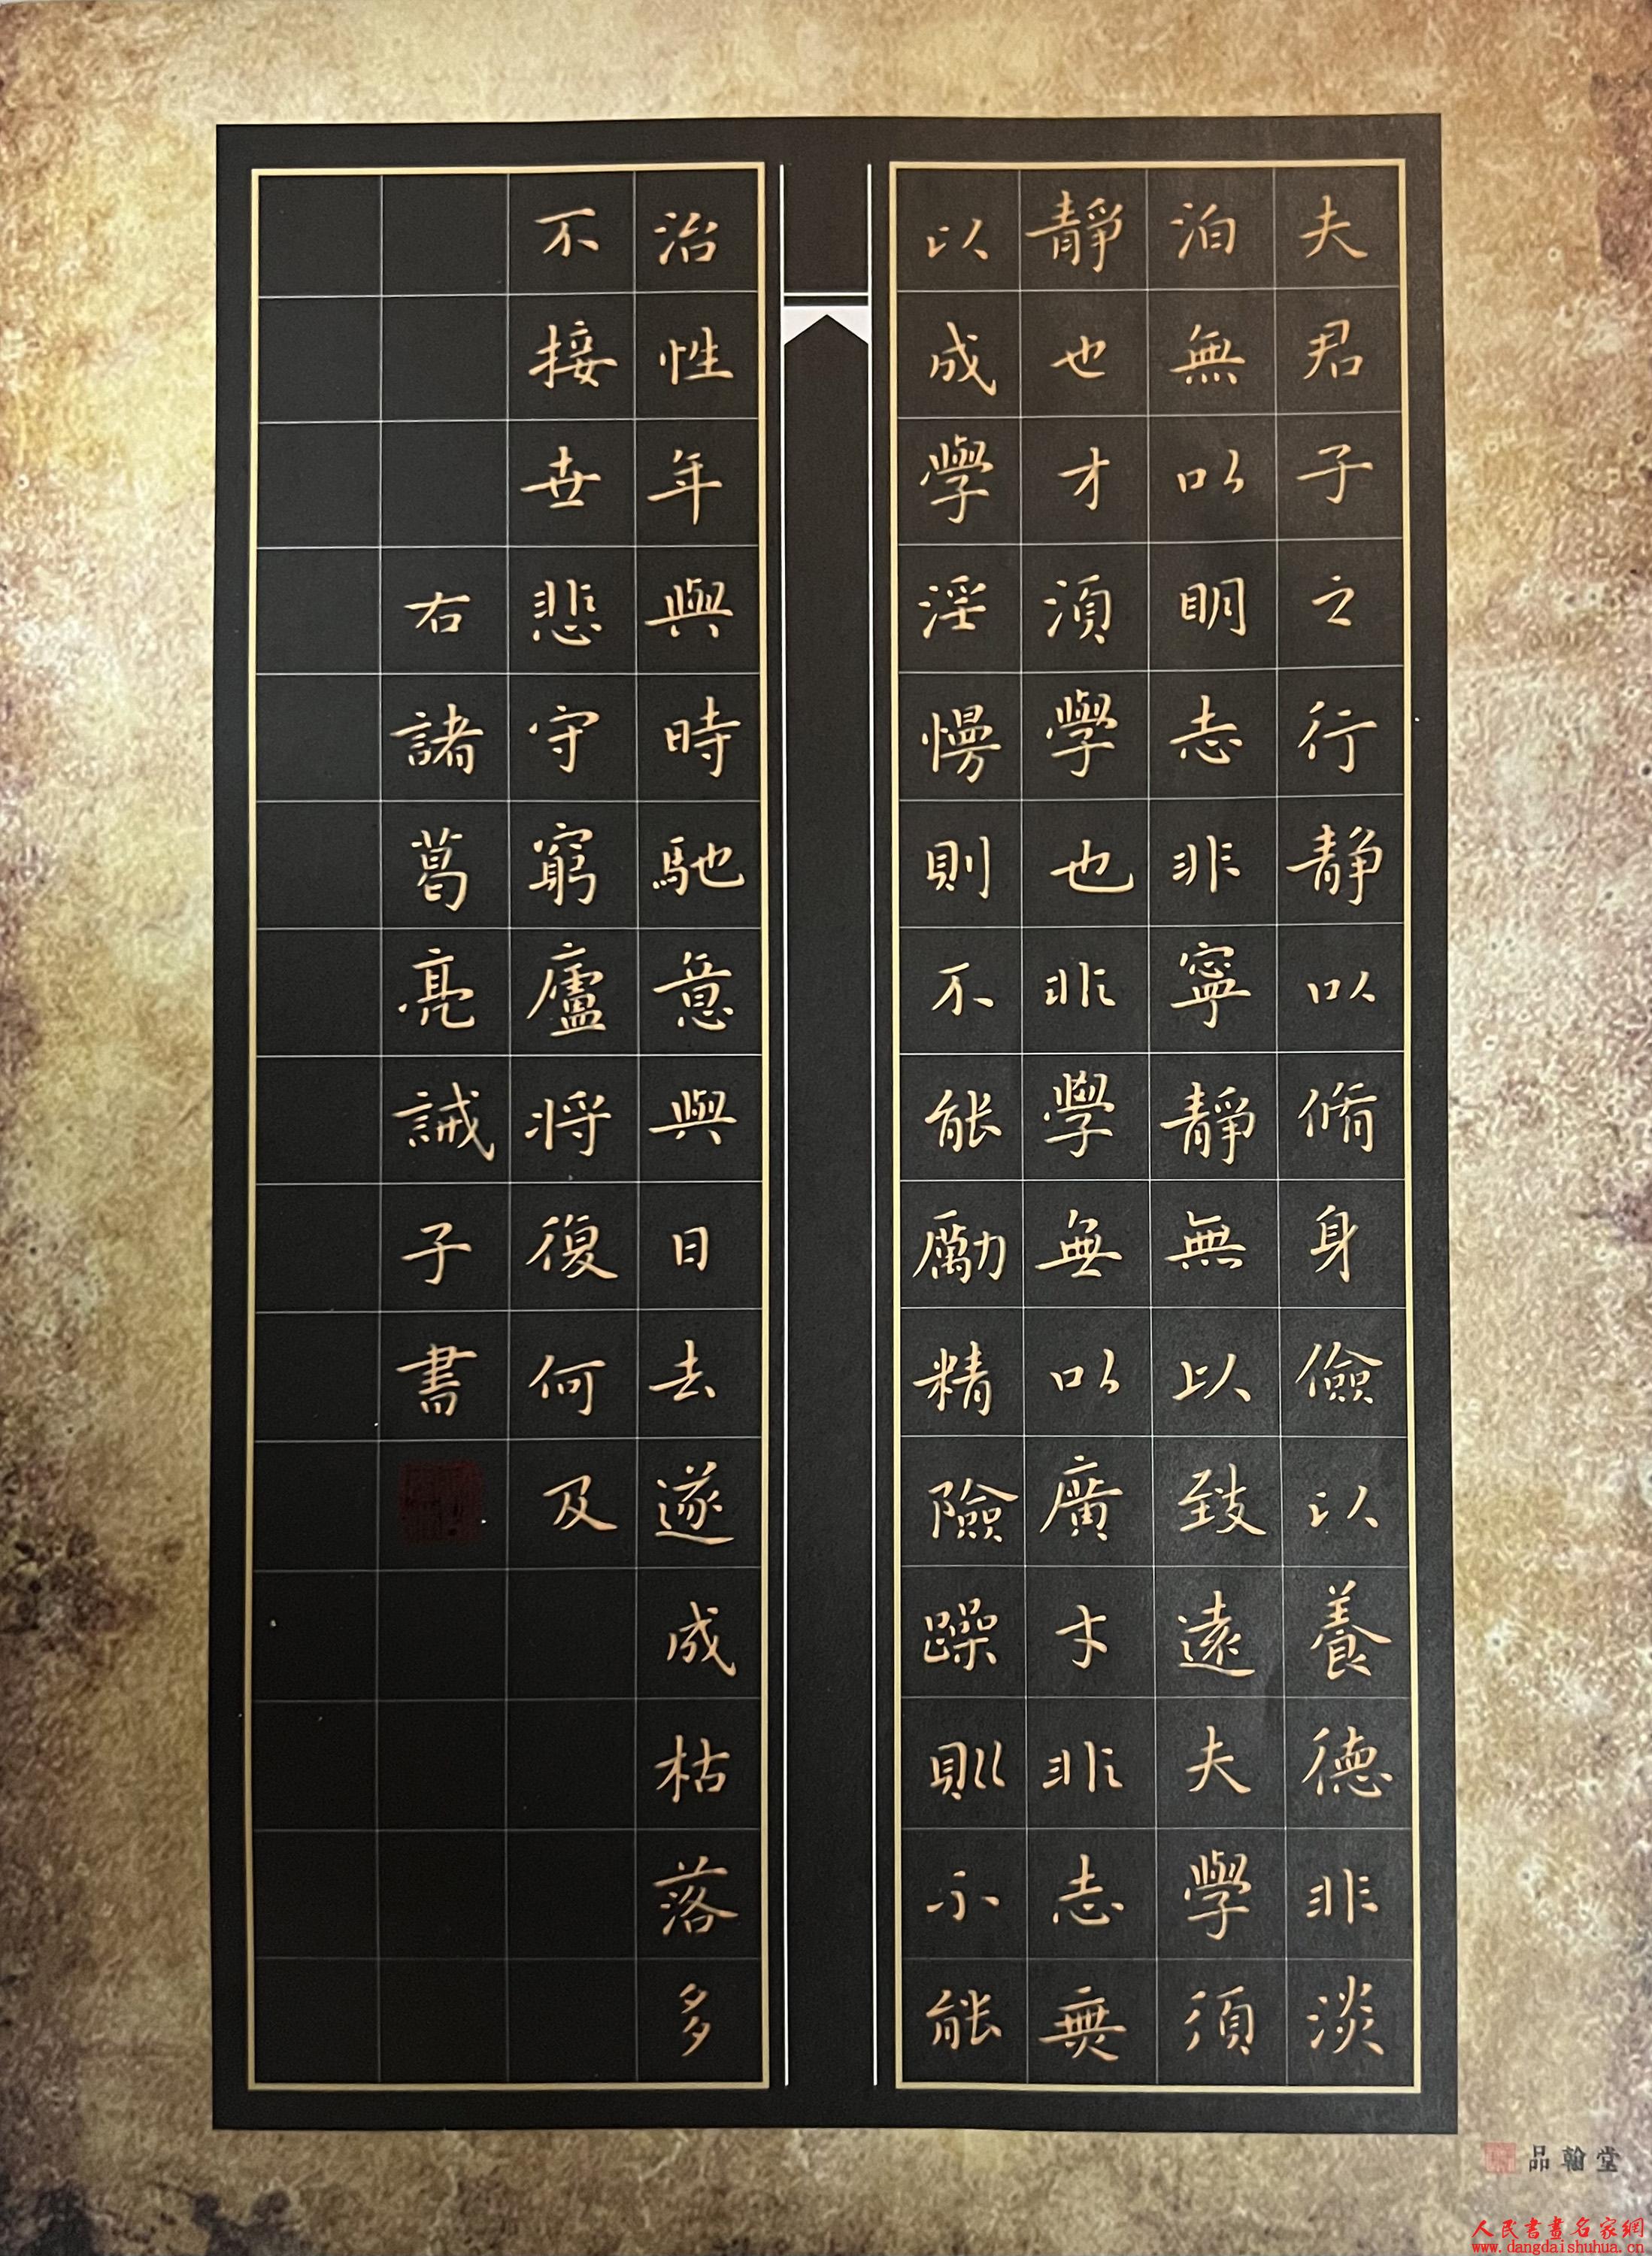 夫君子之行靜以脩身儉以養德非淡
泊無以明志非寧靜無以致遠夫學須
靜也才湏學也非學無以廣才非志無
以成學淫慢則不能勵精險躁則不能
治性年與時馳意與日去遂成枯落多
不接世悲守窮廬将復何及
右諸葛亮誡子書
品翰堂
人民書畫名家網
www.dangdaishuhua.cn